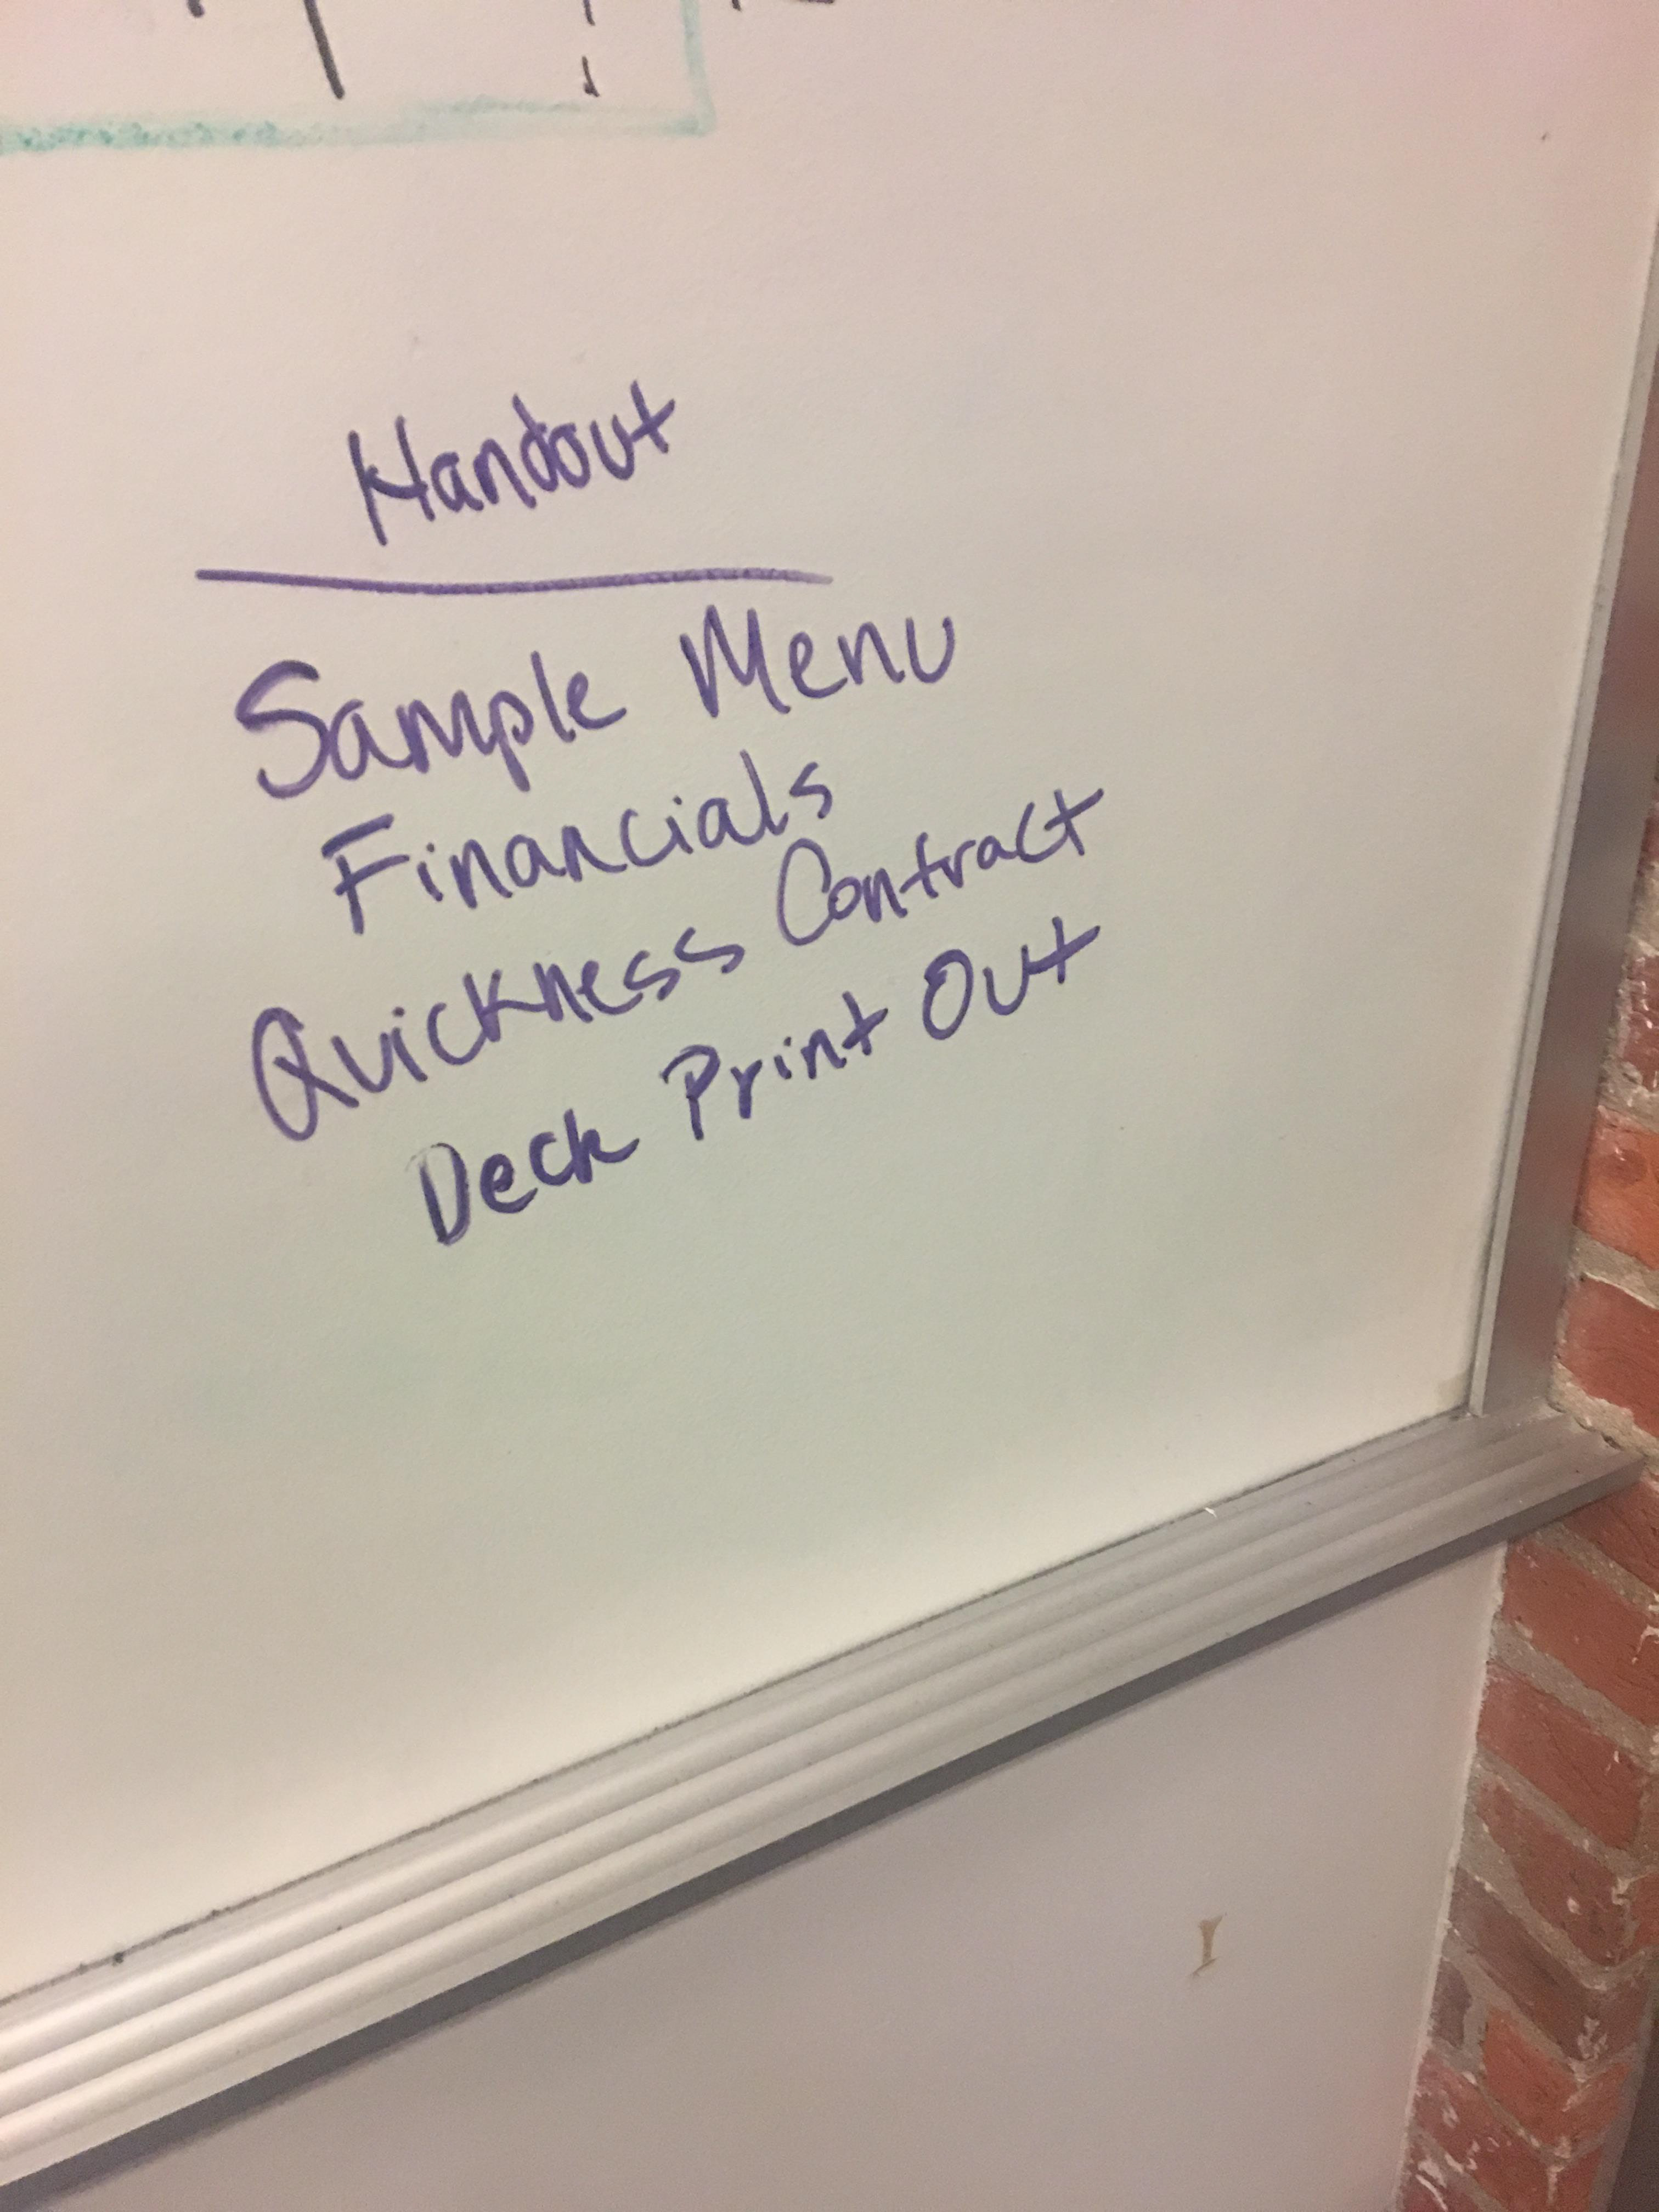 Handout
Sample Menu
Financials
Quickness Contract
Deck Print Out